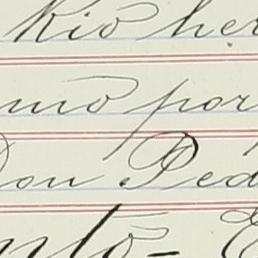 Rió her
mo por
Don Ped
nto- E